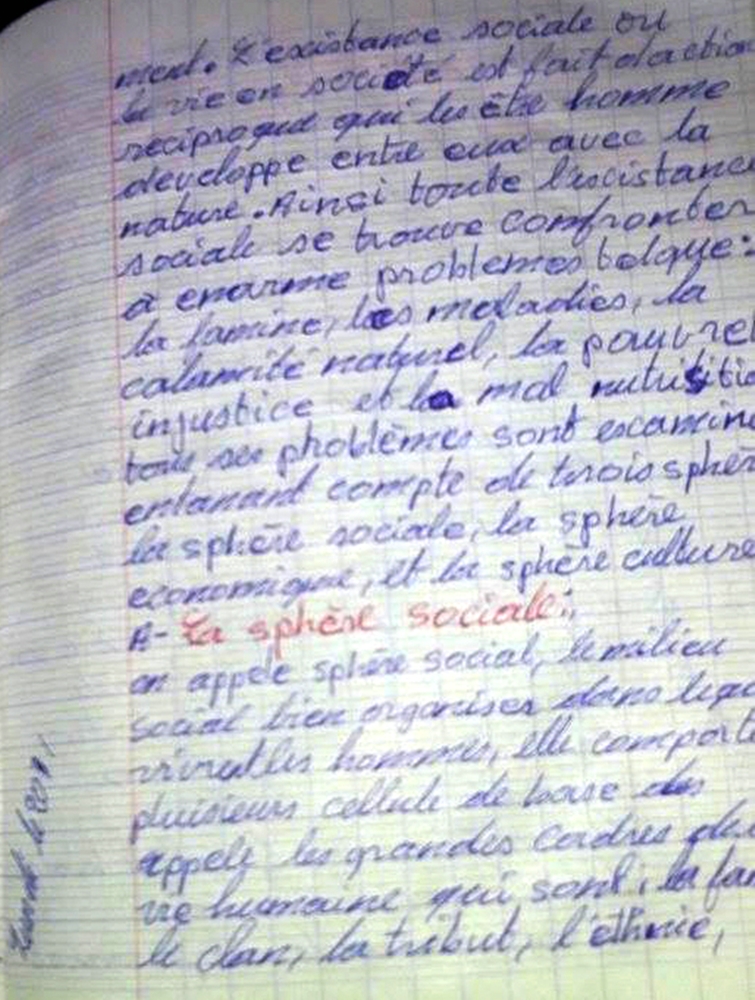 ment. L'existance sociale ou
la vie en société est fait d'action
reciproque qui les être homme
developpe entre eux avec la
nature. Ainsi toute l'existance
sociale se trouve comfronter
a enarme problemes telque:
la famine, les maladies, la
calamité naturel, la pauvre
injustice et la mal nutri
tous ses phoblèmes sont examin
entanant compte de trois sphèr
la sphère sociale, la sphère
economique, et la sphère culture
A- La sphère sociale:
on appele sphère social, le milieu
social bien organiser dans lequ
vivent les hommes, elle comporte
pluisieurs cellule de base des
appele les grandes cadres de
vie humaine qui sont: la fam
le clan, la tribut, l'éthnie,